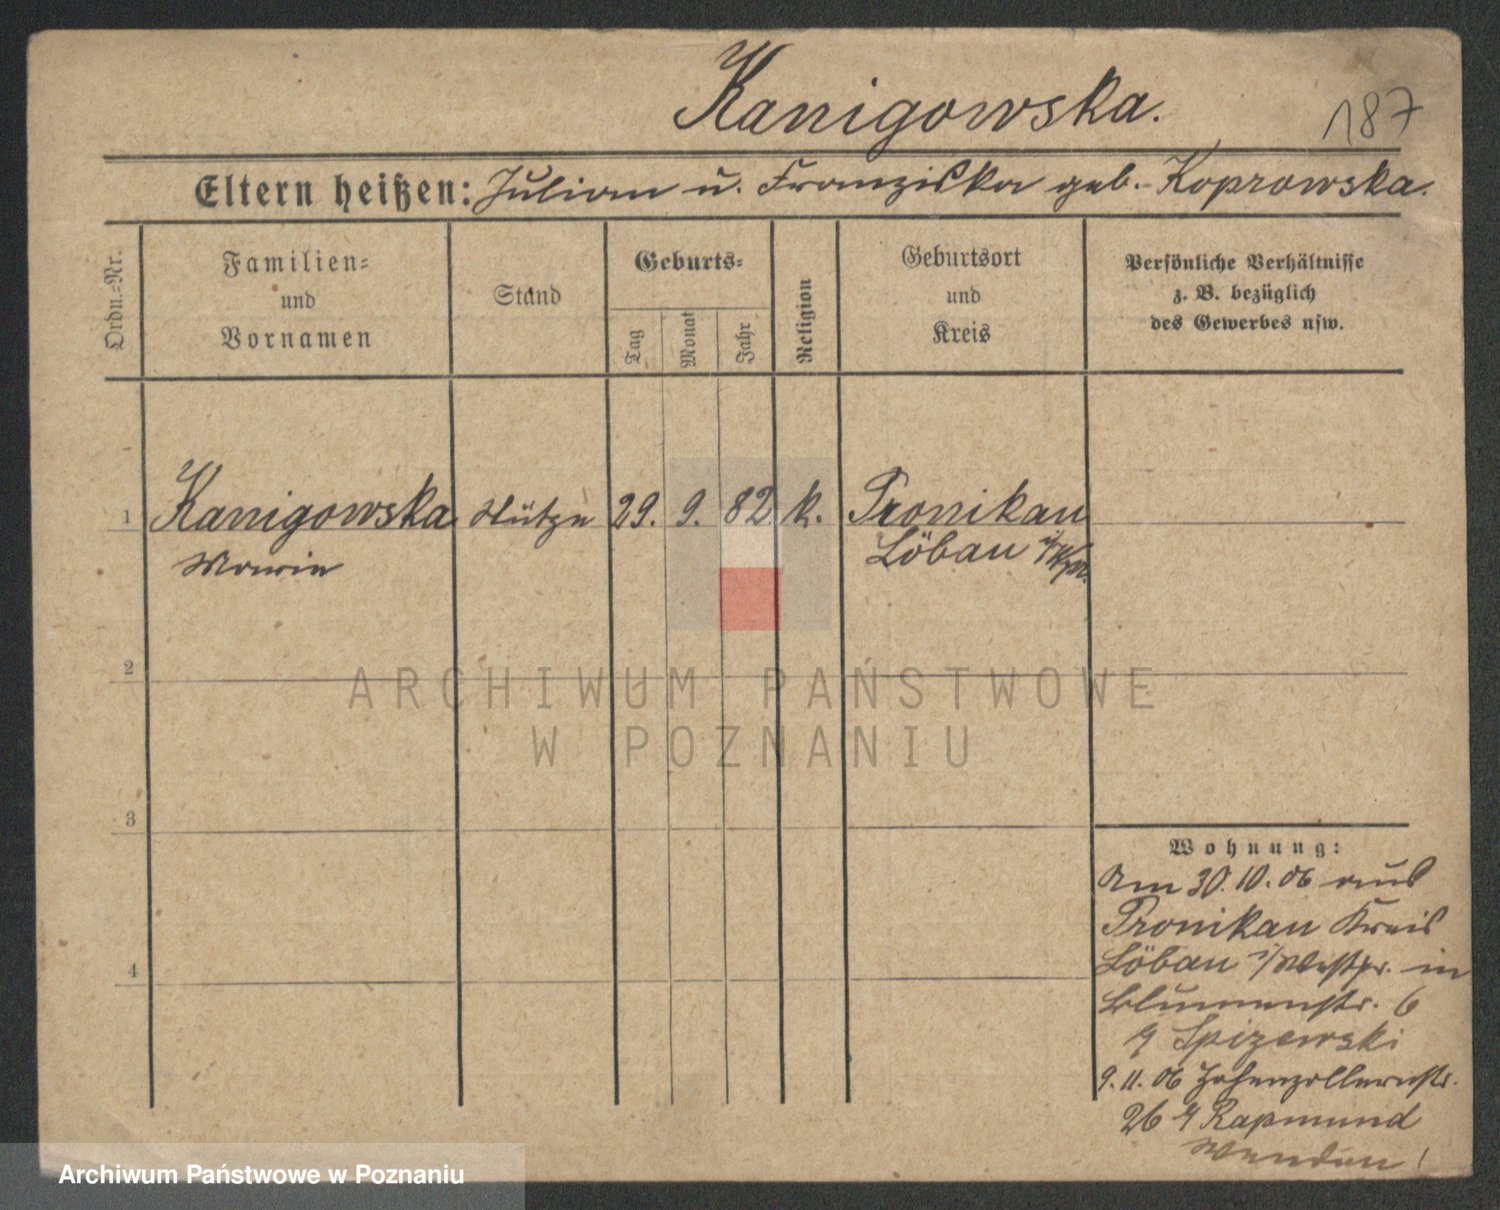 Kanigowska.
187
Eltern heißen: Julian u. Franziska geb. Koprowska.
Ordn.-Nr.
Familien-
und
Vornamen
Stand
Geburts-
Tag
Monat
Jahr
Religion
Geburtsort
und
Kreis
Persönliche Verhältnisse
z. B. bezüglich
des Gewerbes usw.
1 Kanigowska Stütze 29. 9. 82 k. Pronikau
Maria Löbau i/Wpr.
2
ARCHIWUM PAŃSTWOWE
W POZNANIU
3
Wohnung:
Am 30.10.06 aus
Pronikau Kreis
4
Löbau i/Westpr. in
Blumenstr. 6
Spizewski
9.11.06 Hohenzollernstr.
26 Rapmund
Archiwum Państwowe w Poznaniu